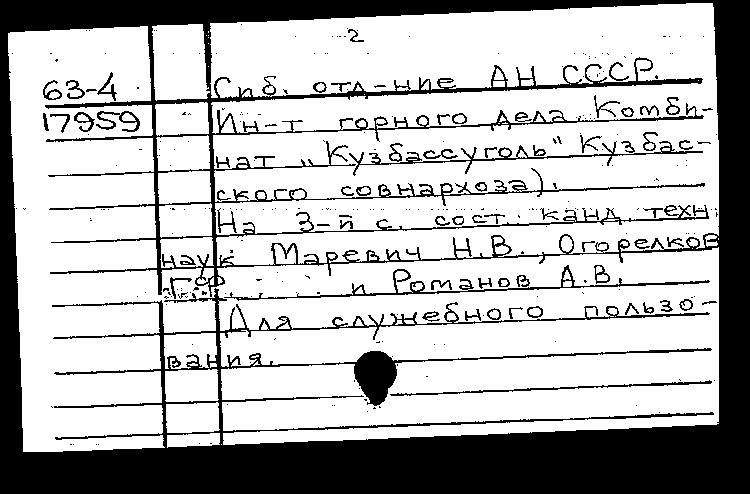 2
63-4 Сиб. отд-ние АН СССР.
17959 Ин-т горного дела Комби-
нат „Кузбассуголь" Кузбас-
ского совнархоза).
На 3-й с. сост. канд. техн.
наук Маревич Н.В., Огорелков
и Романов А.В.
Для служебного пользо-
вания.